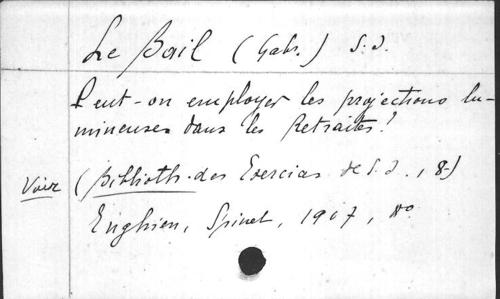 Le Bail (Gabr.) S.J.
Peut-on employer les projections lu-
mineuses dans les Retraites?
Voir (Biblioth. des Exercices de S.I., 8.)
Enghien, Spinet, 1907, 8°